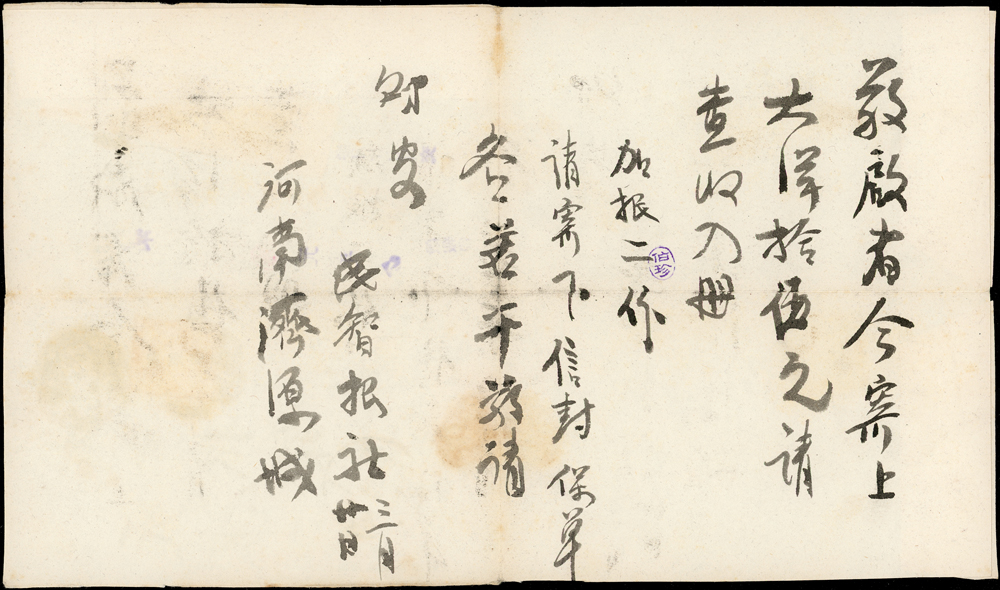 敬啟者今寄上
大洋拾伍元請
查收入册
加报二份
伯珍
請寄下信封保單
各若干敬請
財安
民智报社 三月廿日
河南濟源城